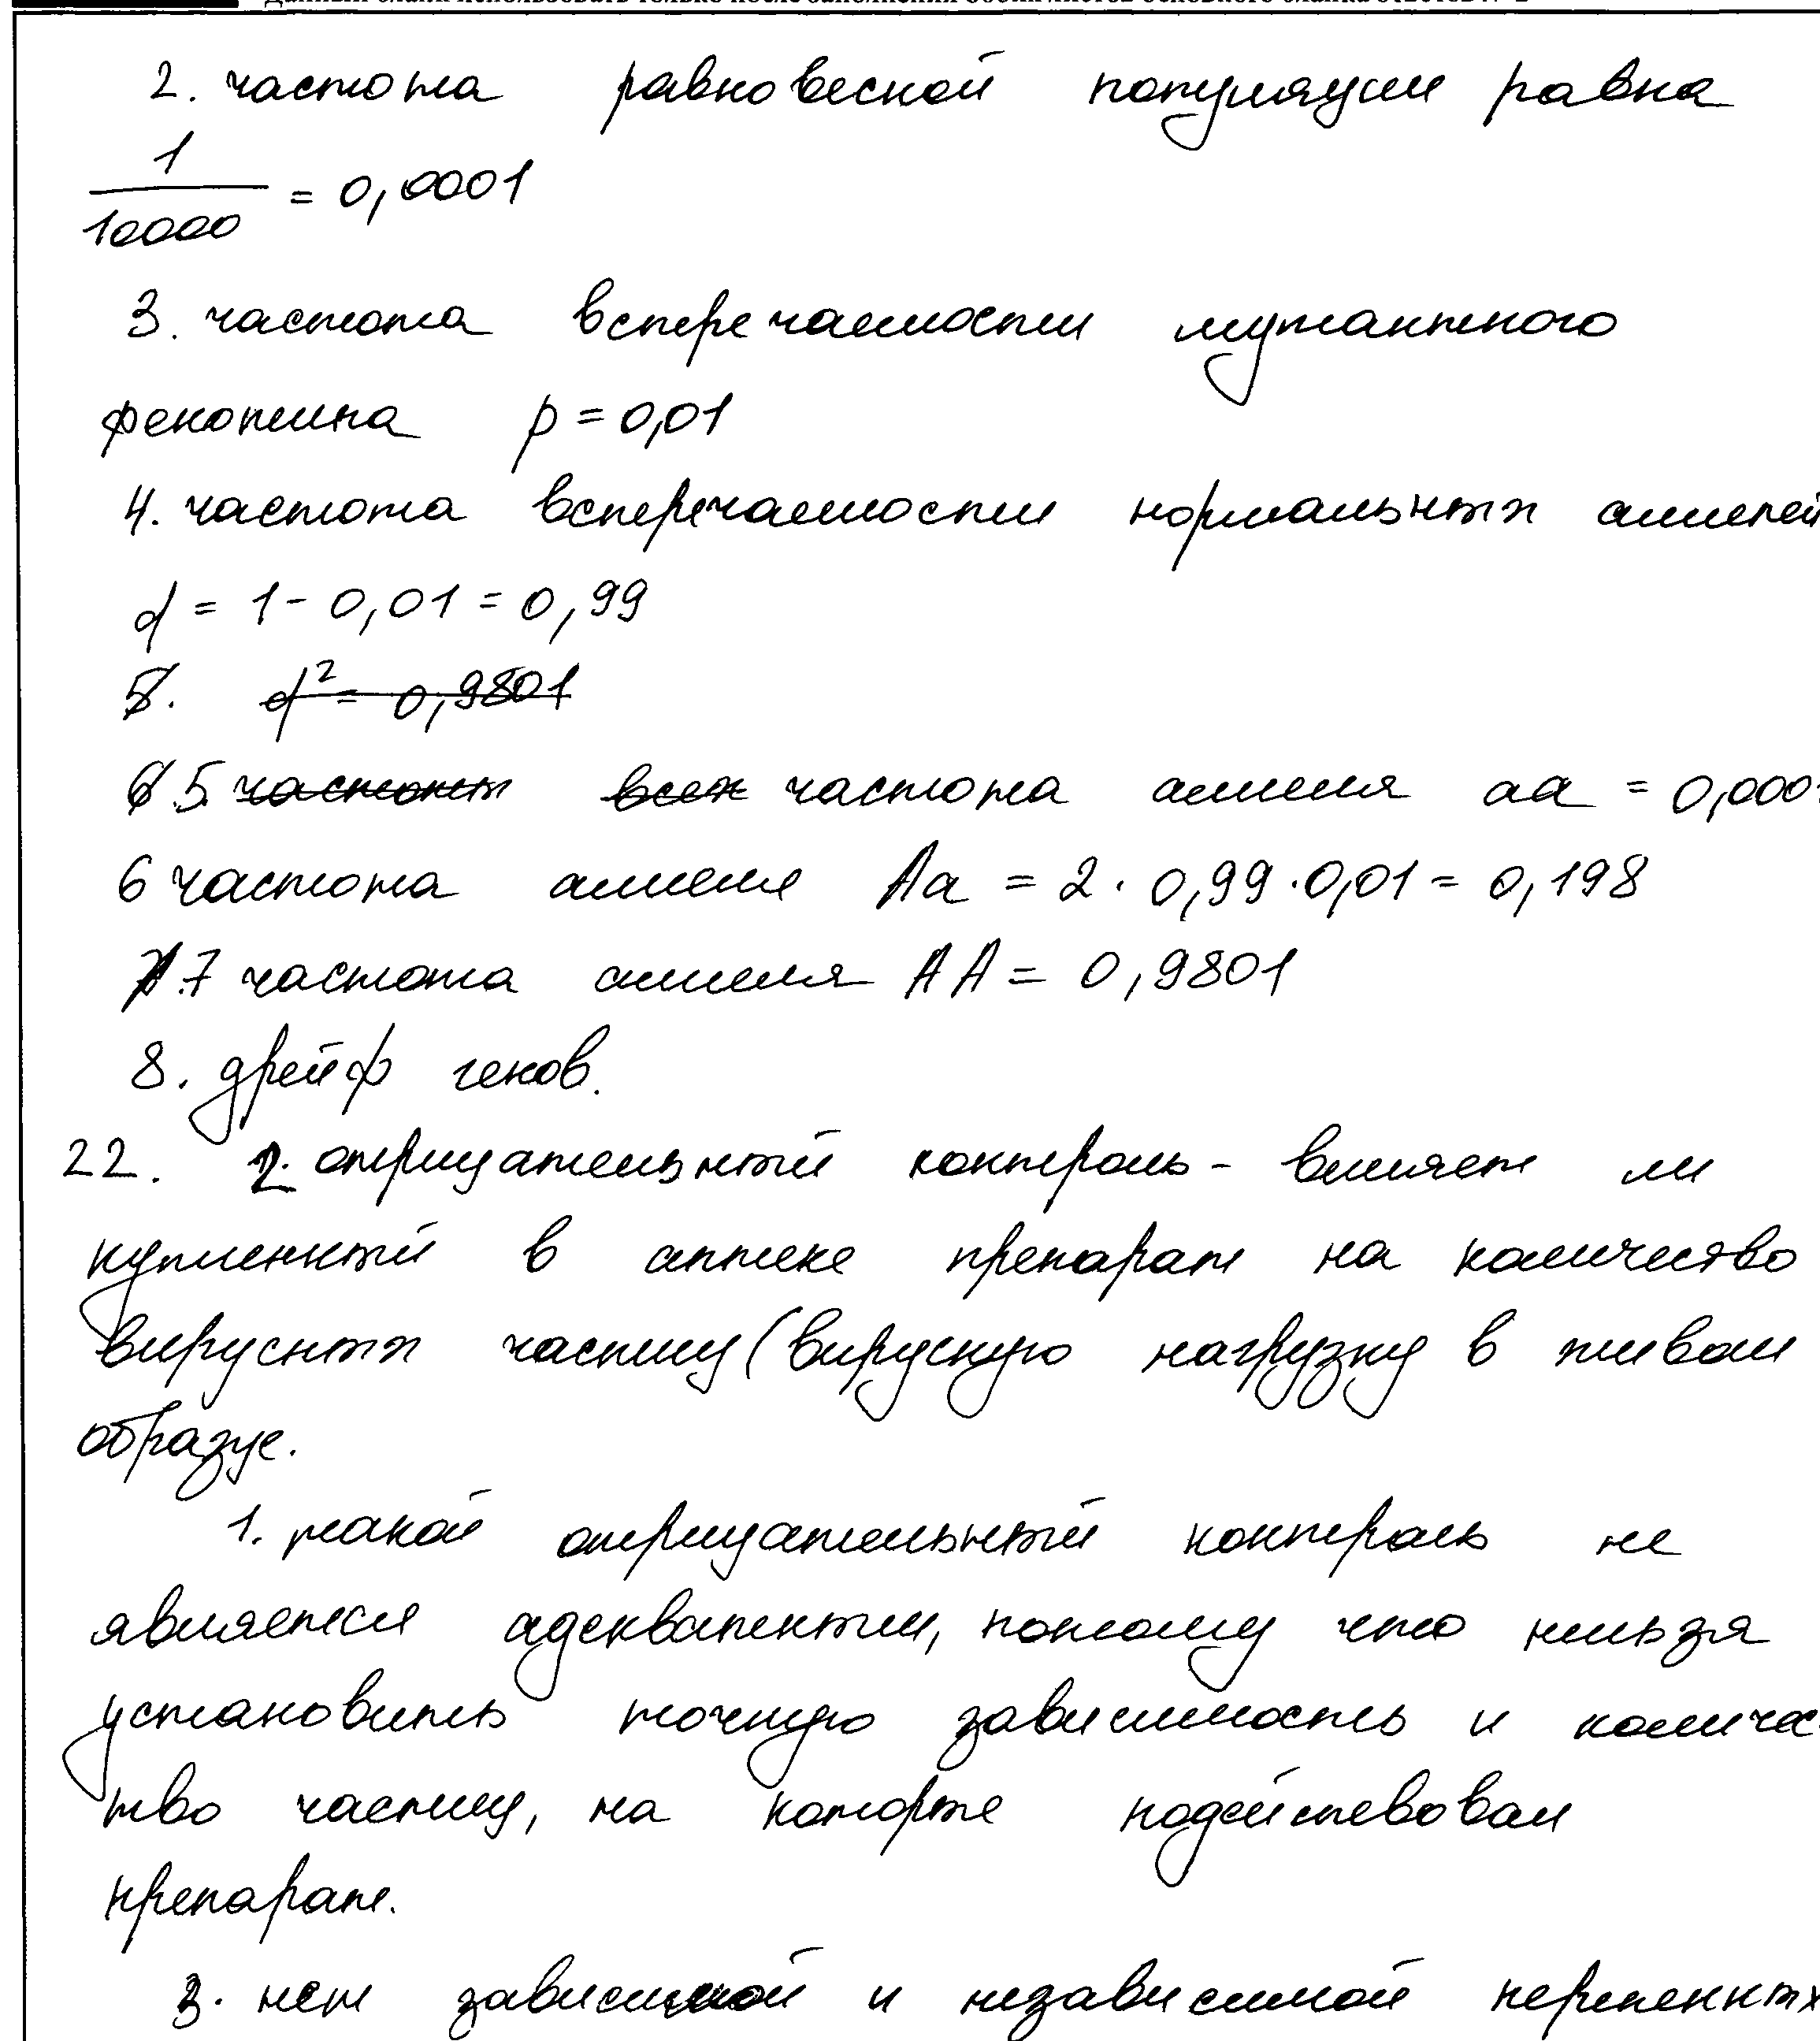 2. частота равновесной популяции равна
1
10000 = 0,0001
3. частота встречаемости мутантного
фенотипа p = 0,01
4. частота встречаемости нормальных аллелей
q = 1 - 0,01 = 0,99
5. q² = 0,9801
6 5. частоты всех частота аллеля aa = 0,000
6 частота аллеля Aa = 2 · 0,99 · 0,01 = 0,198
7 частота аллеля AA = 0,9801
8. дрейф генов.
22. 2. отрицательный контроль - влияет ли
купленный в аптеке препарат на количество
вирусных частиц (вирусную нагрузку в живом
образце.
1. такой отрицательный контроль не
является адекватным, потому что нельзя
установить точную зависимость и количес-
тво частиц, на которые подействовал
препарат.
3. нет зависимой и независимой переменных